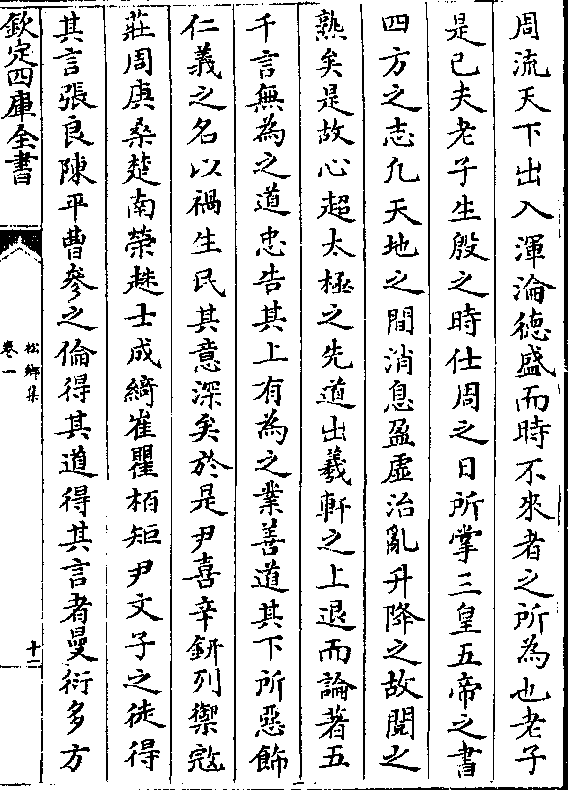 周流天下出入渾淪德盛而時不來者之所為也老子
是已夫老子生殷之時仕周之日所掌三皇五帝之書
四方之志凡天地之間消息盈虛治亂升降之故閱之
熟矣是故心超太極之先道出羲軒之上退而論著五
千言無為之道忠告其上有為之業善道其下所惡飾
仁義之名以禍生民其意深矣於是尹喜辛鈃列禦寇
莊周庚桑楚南榮趎士成綺崔瞿栢矩尹文子之徒得
其言張良陳平曹參之倫得其道得其言者曼衍多方
欽定四庫全書
松鄉集
卷一
十二